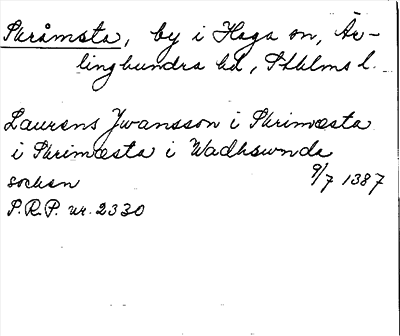 Skråmsta, by i Haga sn, Är-
linghundra hd, Sthlms l.
Laurens Jwansson i Skrimæsta
i Skrimæsta i Wadhswnda
socken 9/7 1387
P.R.P. nr. 2330